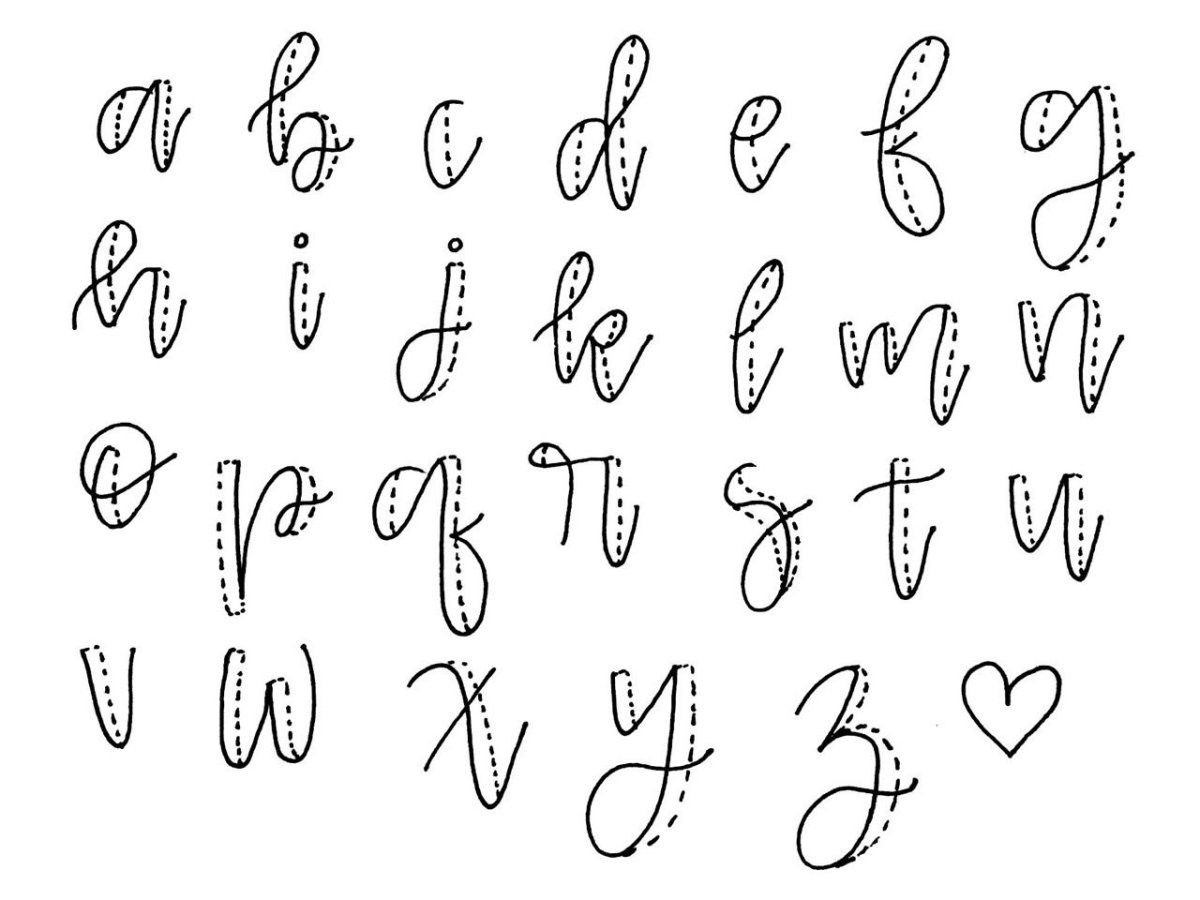 a b c d e f g
h i j k l m n
o p q r s t u
v w x y z ♡